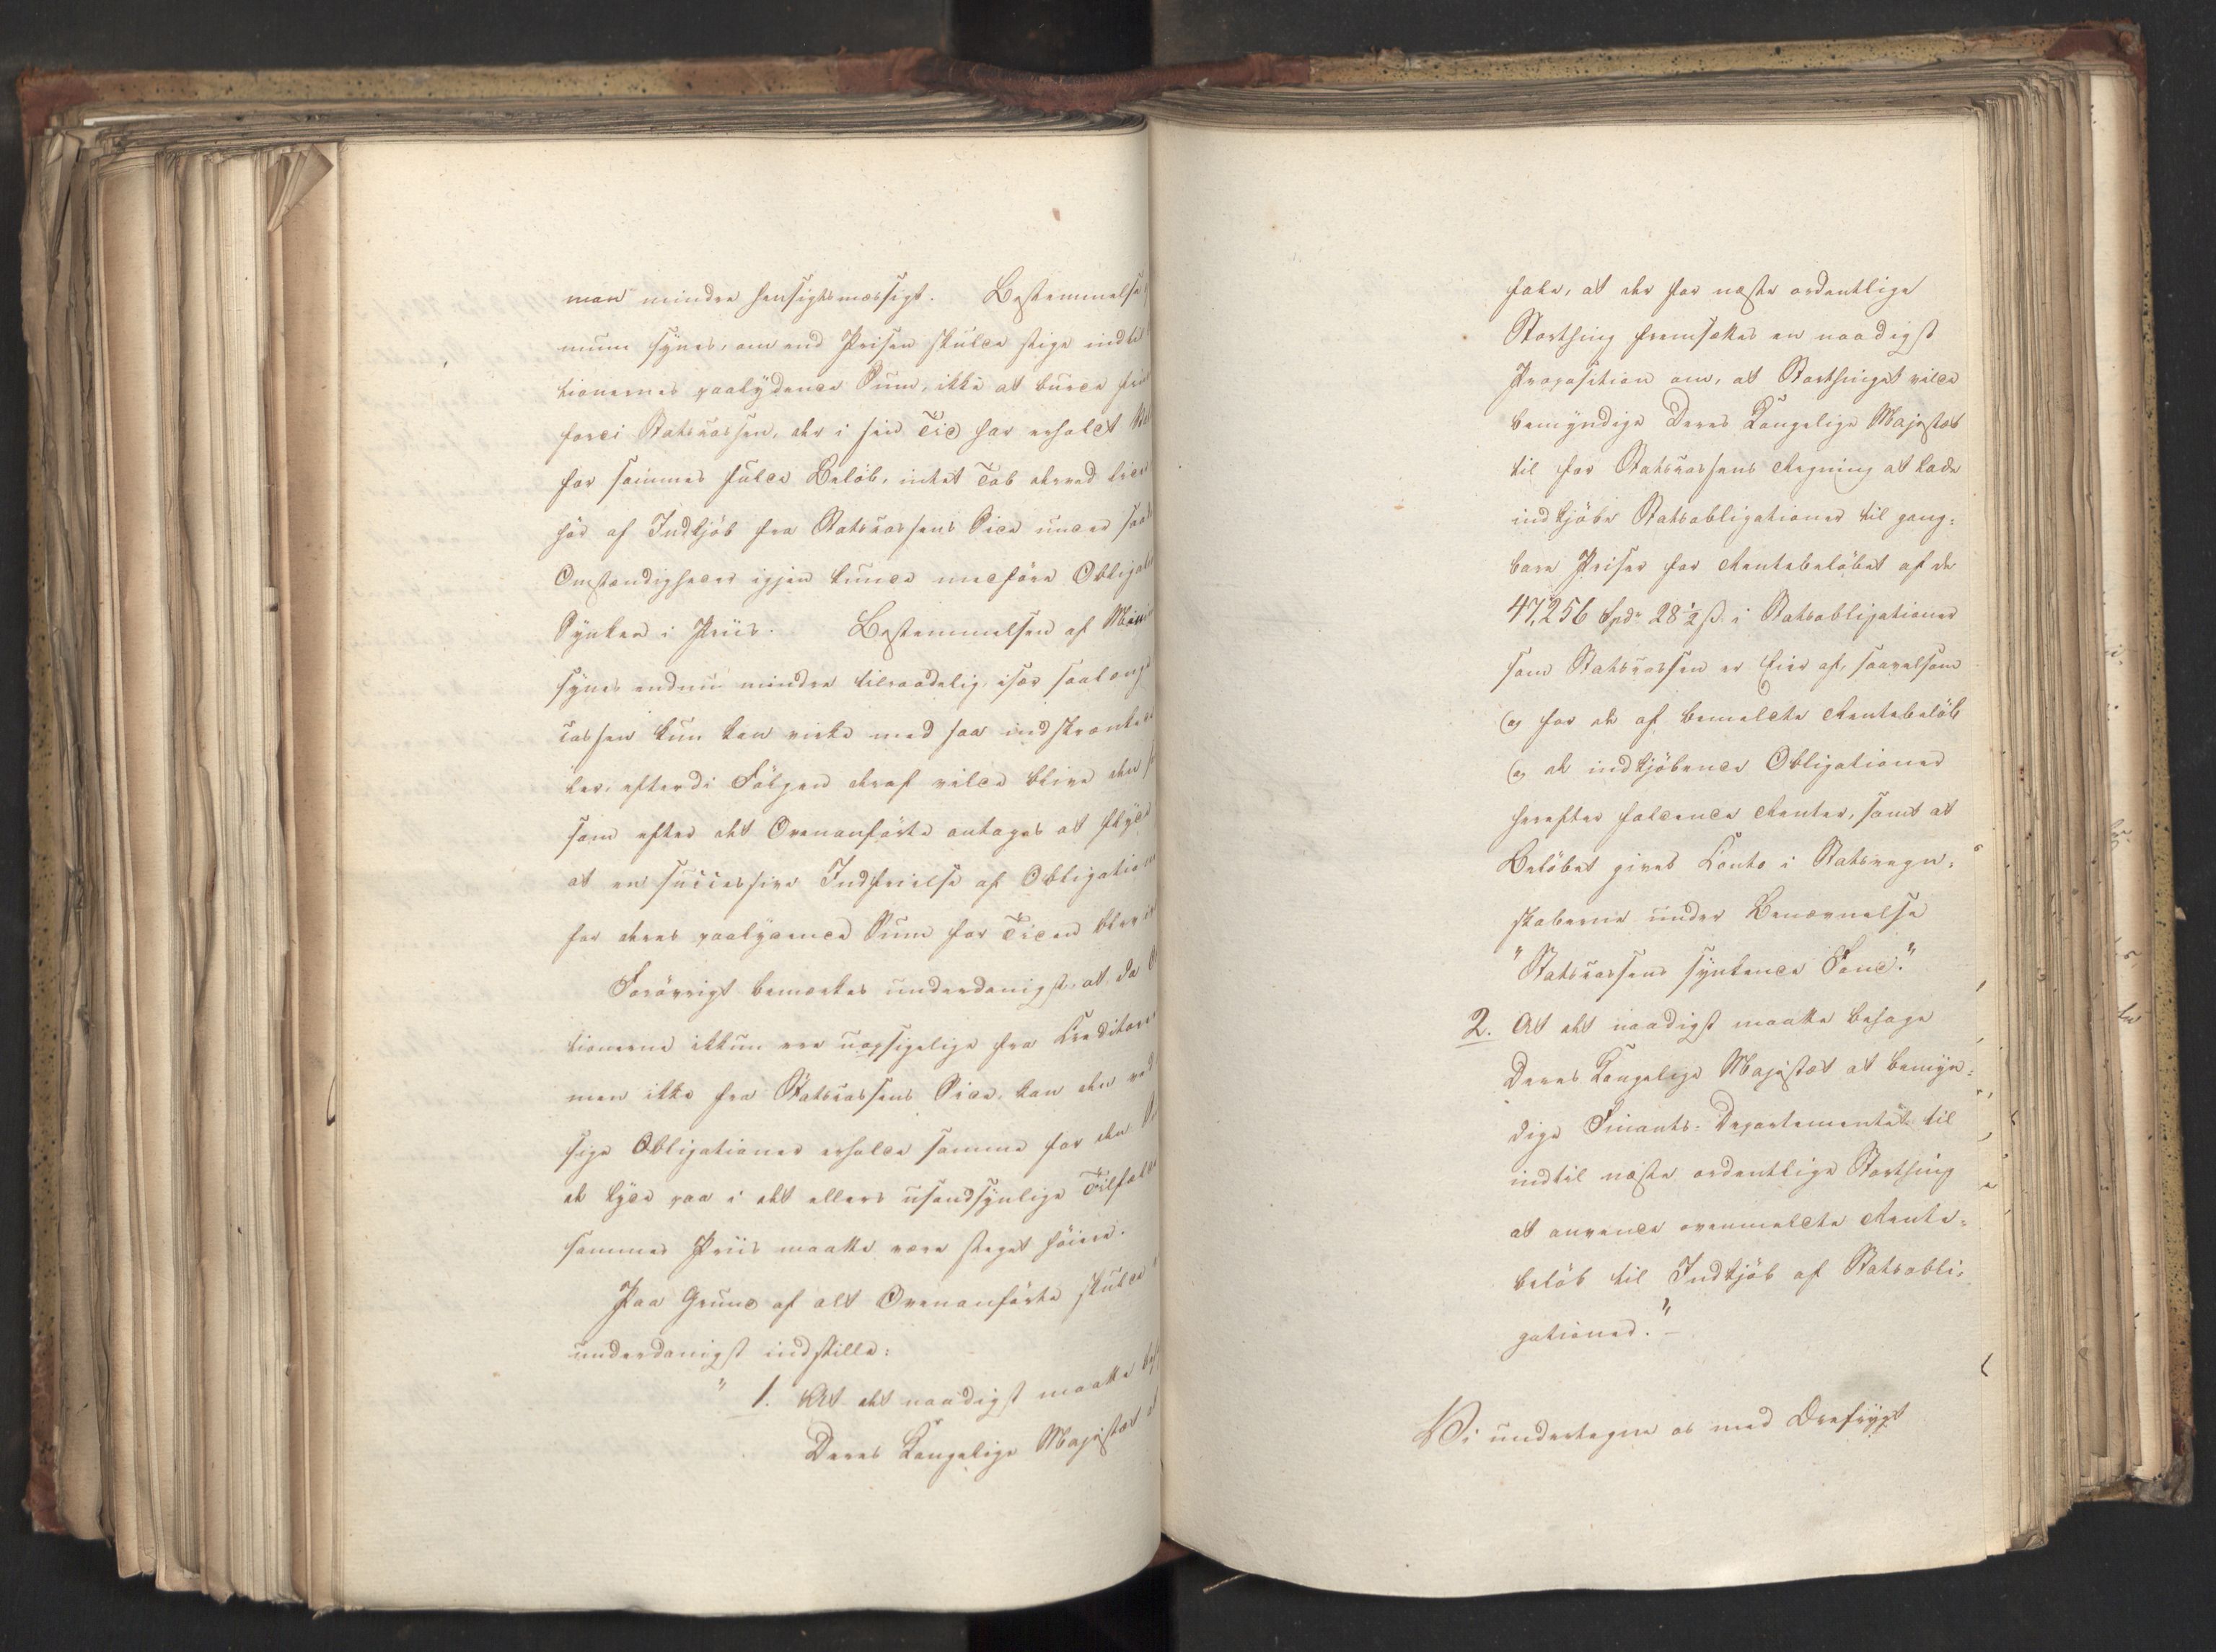 man mindre hensigtsmæssigt. Bestemmelse
mum synes, om end Prisen skulde stige indtil
tionernes paalydende Sum, ikke at burde
fordi Statskassen, der i sin Tid har erholdt
for sammes fulde Beløb, intet Tab derved lider
før af Indkjøb fra Statskassens Side under saad
Omstændigheder igjen kunde medføre Obligat
Synken i Priis. Bestemmelsen af Mini
synes endnu mindre tilraadelig, især saalænge
cassen kun kan virke med saa indskrænkede
ler, efterdi Følgen deraf vilde blive den
som efter det Ovenanførte antages at flyde
at en successive Indfrielse af Obligation
for deres paalydende Sum for Tiden blev
Forøvrigt bemærkes underdanigst, at da
tionerne ikkun ere uopsigelige fra Creditore
men ikke fra Statscassens Side, kan den ved
sige Obligationer erholde samme for den
de lyde paa i det ellers usandsynlige Tilfælde
sammes Priis maatte være steget høiere.
Paa Grund af alt Ovenanførte skulde
underdanigst indstille:
" 1. At det naadigst maatte
Deres Kongelige Majestæt
fale, at der for næste ordentlige
Storthing fremsættes en naadigst
Proposition om, at Storthinget vilde
bemyndige Deres Kongelige Majestæt
til for Statscassens Regning at lade
indkjøbe Statsobligationer til gang-
bare Priser for Rentebeløbet af de
47,256 Spdr 28 1/2 ß i Statsobligationer
som Statscassen er Eier af, saavelsom
og for de af bemeldte Rentebeløb
og de indkjøbende Obligationer
herefter faldende Renter, samt at
Beløbet gives Conto i Statsregn-
skaberne under Benævnelse
"Statscassens synkende Fond."
2. At det naadigst maatte behage
Deres Kongelige Majestæt at bemyn-
dige Finants-Departementet til
indtil næste ordentlige Storthing
at anvende ovenmeldte Rente-
beløb til Indkjøb af Statsobli-
gationer." -
Vi undertegne os med Ærefrygt